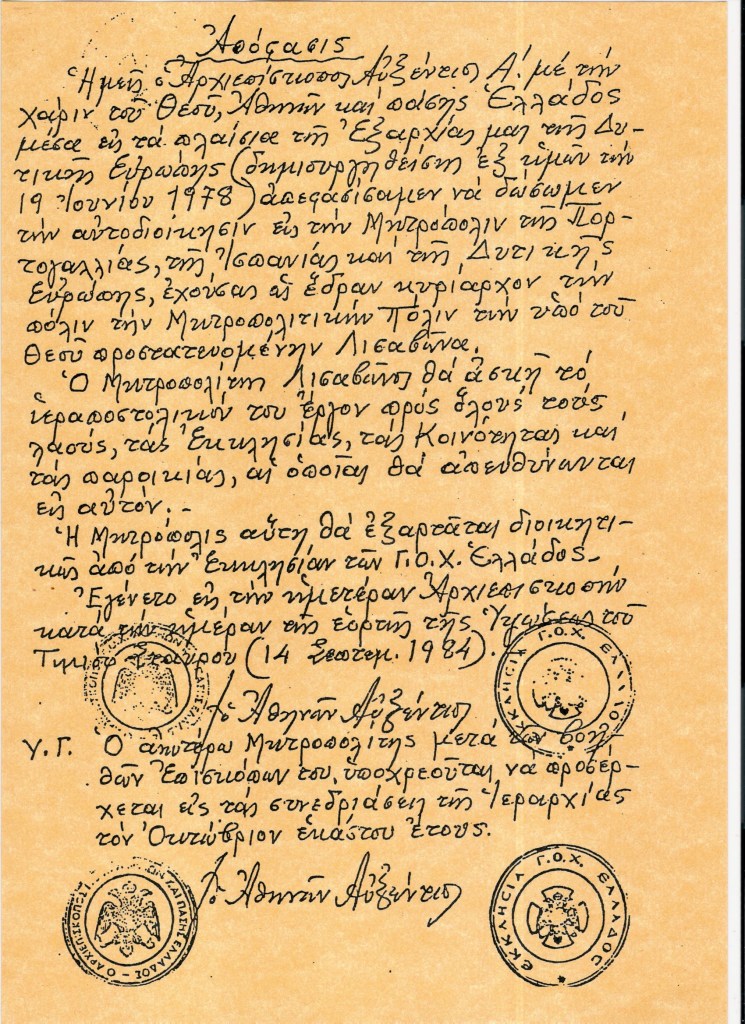 Ἀπόφασις
Ἡμεῖς ὁ Ἀρχιεπίσκοπος Αὐξέντιος Α΄. μέ τήν
χάριν τοῦ Θεοῦ, Ἀθηνῶν καί πάσης Ἑλλάδος
μέσα εἰς τά πλαίσια τῆς Ἐξαρχίας μας τῆς Δυ-
τικῆς Εὐρώπης (δημιουργηθείσης ἐξ ἡμῶν τήν
19 Ἰουνίου 1978) ἀπεφασίσαμεν νά δώσωμεν
τήν αὐτοδιοίκησιν εἰς τήν Μητρόπολιν τῆς Πορ-
τογαλλίας, τῆς Ἰσπανίας καί τῆς Δυτικῆς
Εὐρώπης, ἐχούσας ὡς ἕδραν κυρίαρχον τήν
πόλιν τήν Μητροπολιτικήν Πόλιν τήν ὑπό τοῦ
Θεοῦ προστατευομένην Λισαβῶνα.
Ὁ Μητροπολίτης Λισαβῶνος θά ἀσκῆ τό
ἱεραποστολικόν του ἔργον πρός ὅλους τούς
λαούς, τάς Ἐκκλησίας, τάς Κοινότητας καί
τάς παροικίας, αἱ ὁποῖαι θά ἀπευθύνωνται
εἰς αὐτόν. -
Ἡ Μητρόπολις αὕτη θά ἐξαρτᾶται διοικητι-
κῶς ἀπό τήν Ἐκκλησίαν τῶν Γ.Ο.Χ. Ἑλλάδος-
Ἐγένετο εἰς τήν ἡμετέραν Ἀρχιεπισκοπήν
κατά τήν ἡμέραν τῆς ἑορτῆς τῆς Ὑψώσεως τοῦ
Τιμίου Σταυροῦ (14 Σεπτεμ. 1984).
ΕΚΚΛΗΣΙΑ Γ.Ο.Χ. ΕΛΛΑΔΟΣ
† ὁ Ἀθηνῶν Αὐξέντιος
Υ.Γ. Ὁ ἀνωτέρω Μητροπολίτης μετά τῶν βοη-
θῶν Ἐπισκόπων του, ὑποχρεοῦται νά προσέρ-
χεται εἰς τάς συνεδριάσεις τῆς Ἱεραρχίας
τόν Ὀκτώβριον ἑκάστου ἔτους.
† ὁ Ἀθηνῶν Αὐξέντιος
Ο ΑΡΧΙΕΠΙΣΚΟΠΟΣ ΚΑΙ ΠΑΣΗΣ ΕΛΛΑΔΟΣ
ΕΚΚΛΗΣΙΑ Γ.Ο.Χ. ΕΛΛΑΔΟΣ